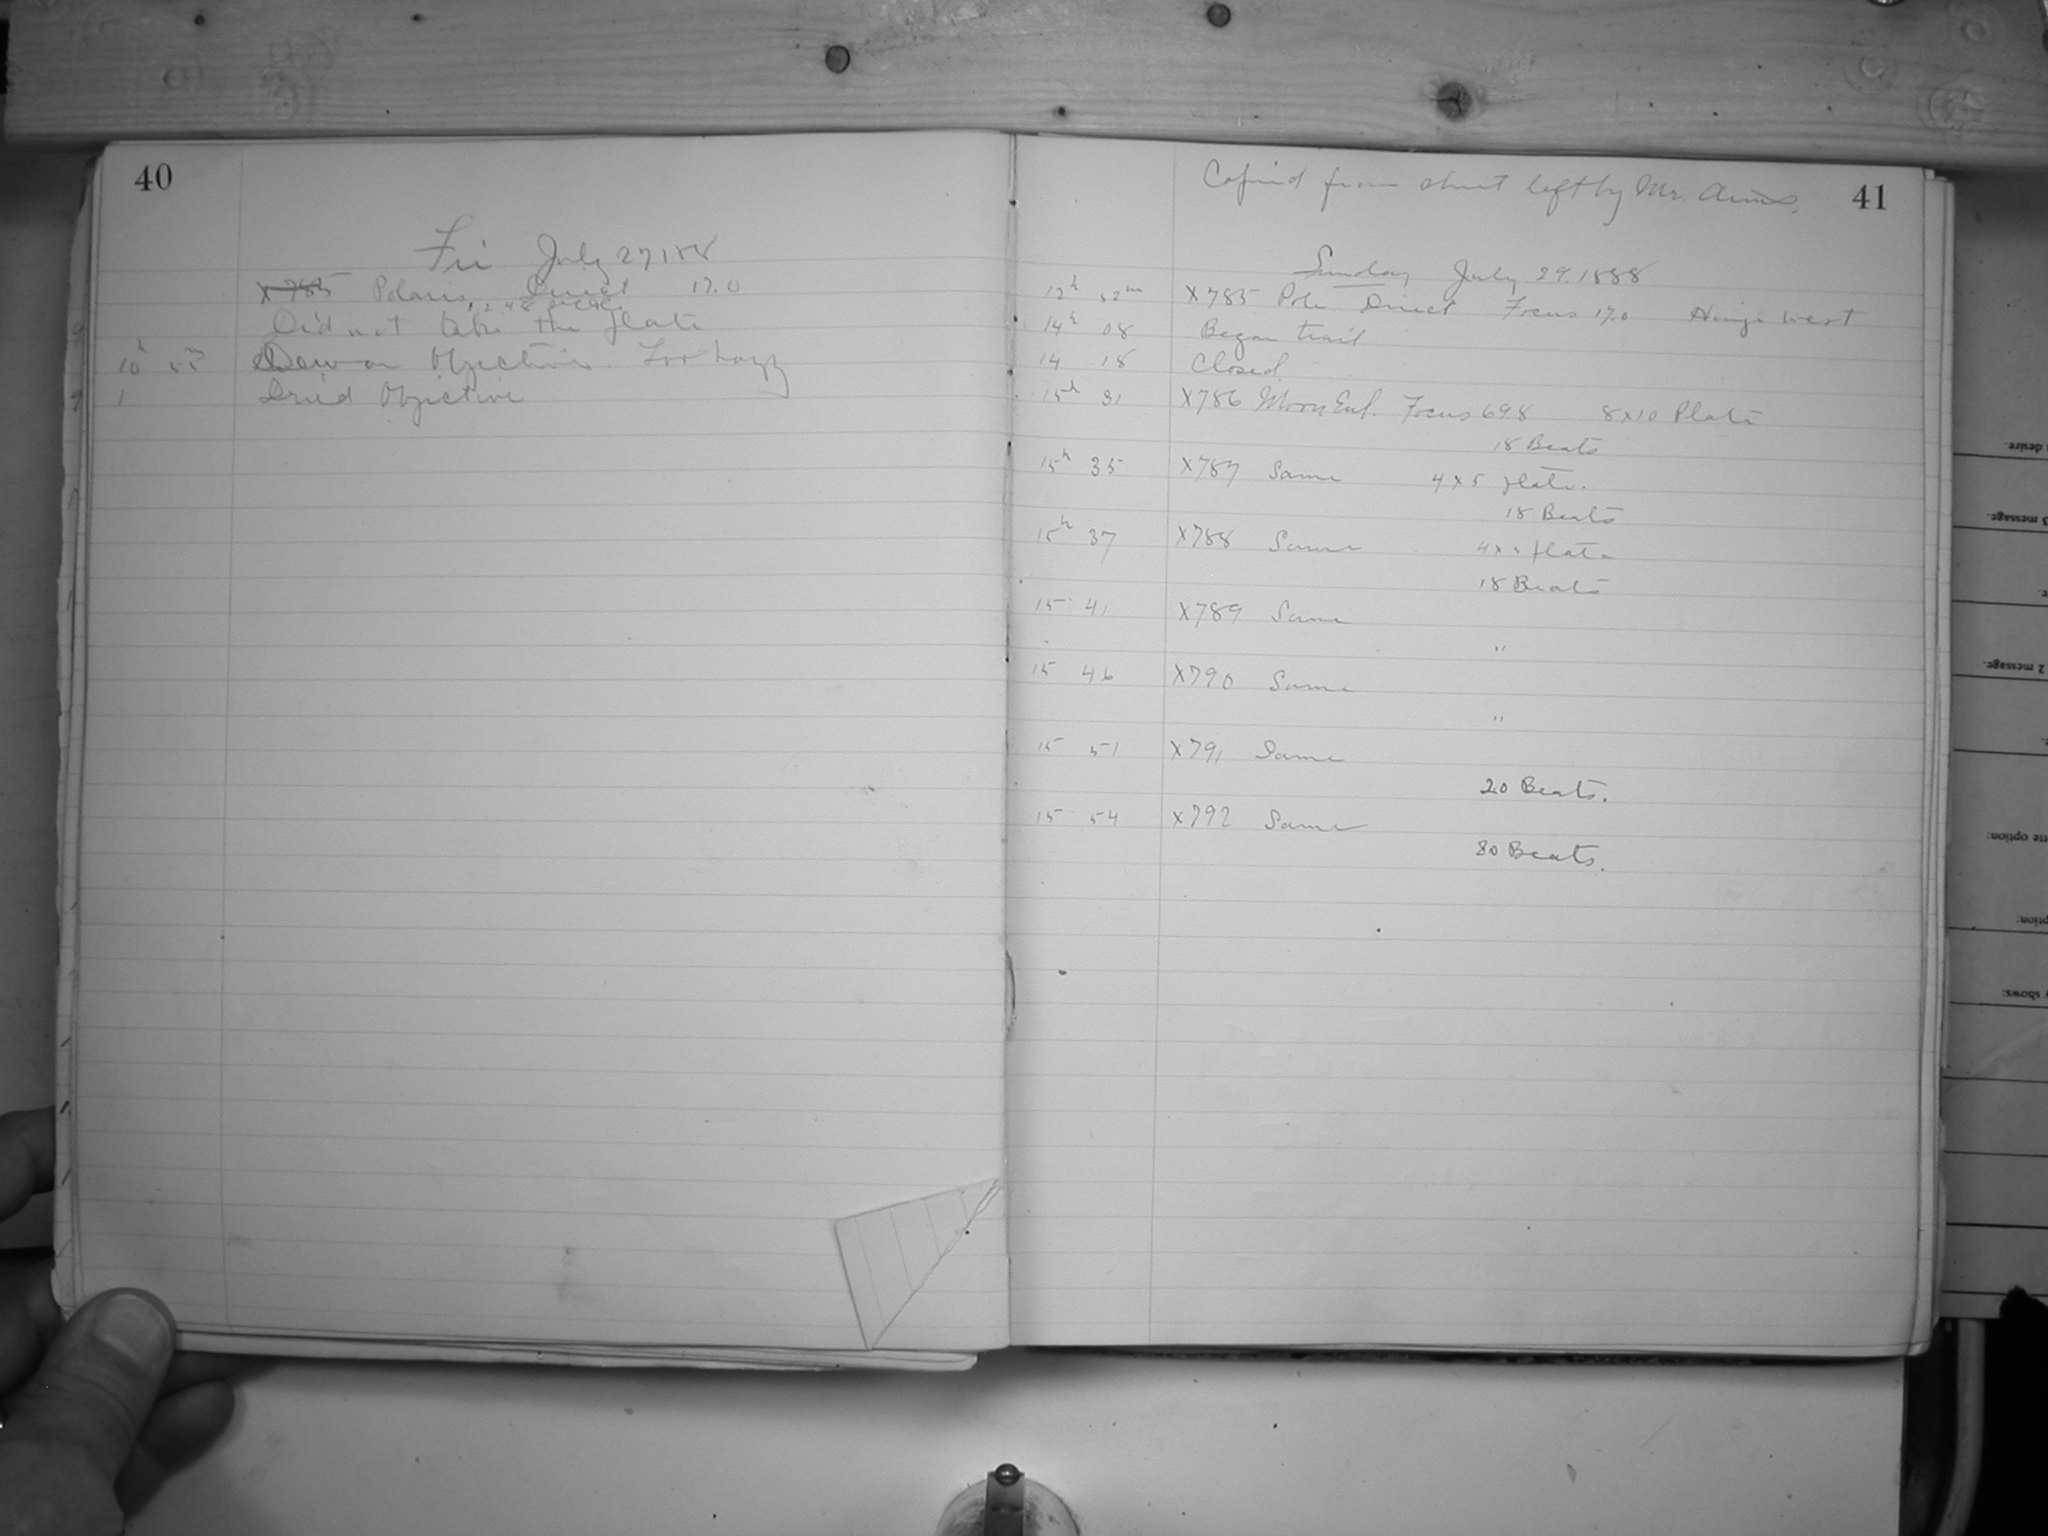 40
Fri July 27 188
X785 Polaris, Direct 17.0
Did not take the plate
10h 55m Dew on Objective. Too hazy
1 Dried Objective
Copied from sheet left by Mr.
41
Sunday July 29. 1888
12h 52m X785 Pole Direct Focus 17.0 Hinge West
14h 08 Began trail
14 18 Closed
15h 31 X786 Moon Enl. Focus 698 8x10 Plate
18 Beats
15h 35 X787 Same 4x5 plate.
18 Beats
15h 37 X788 Same 4x5 plate
18 Beats
15 41 X789 Same
"
15 46 X790 Same
"
15 51 X791 Same
20 Beats.
15 54 X792 Same
80 Beats.
desire.
3 message.
2 message.
tte option:
ption:
y shows: